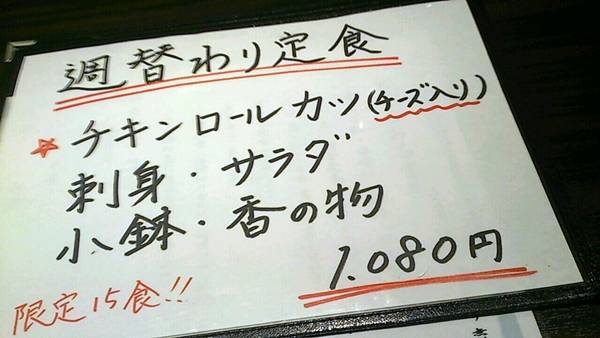 週替わり定食
★チキンロールカツ(チーズ入り)
刺身・サラダ
小鉢・香の物
1.080円
限定15食!!